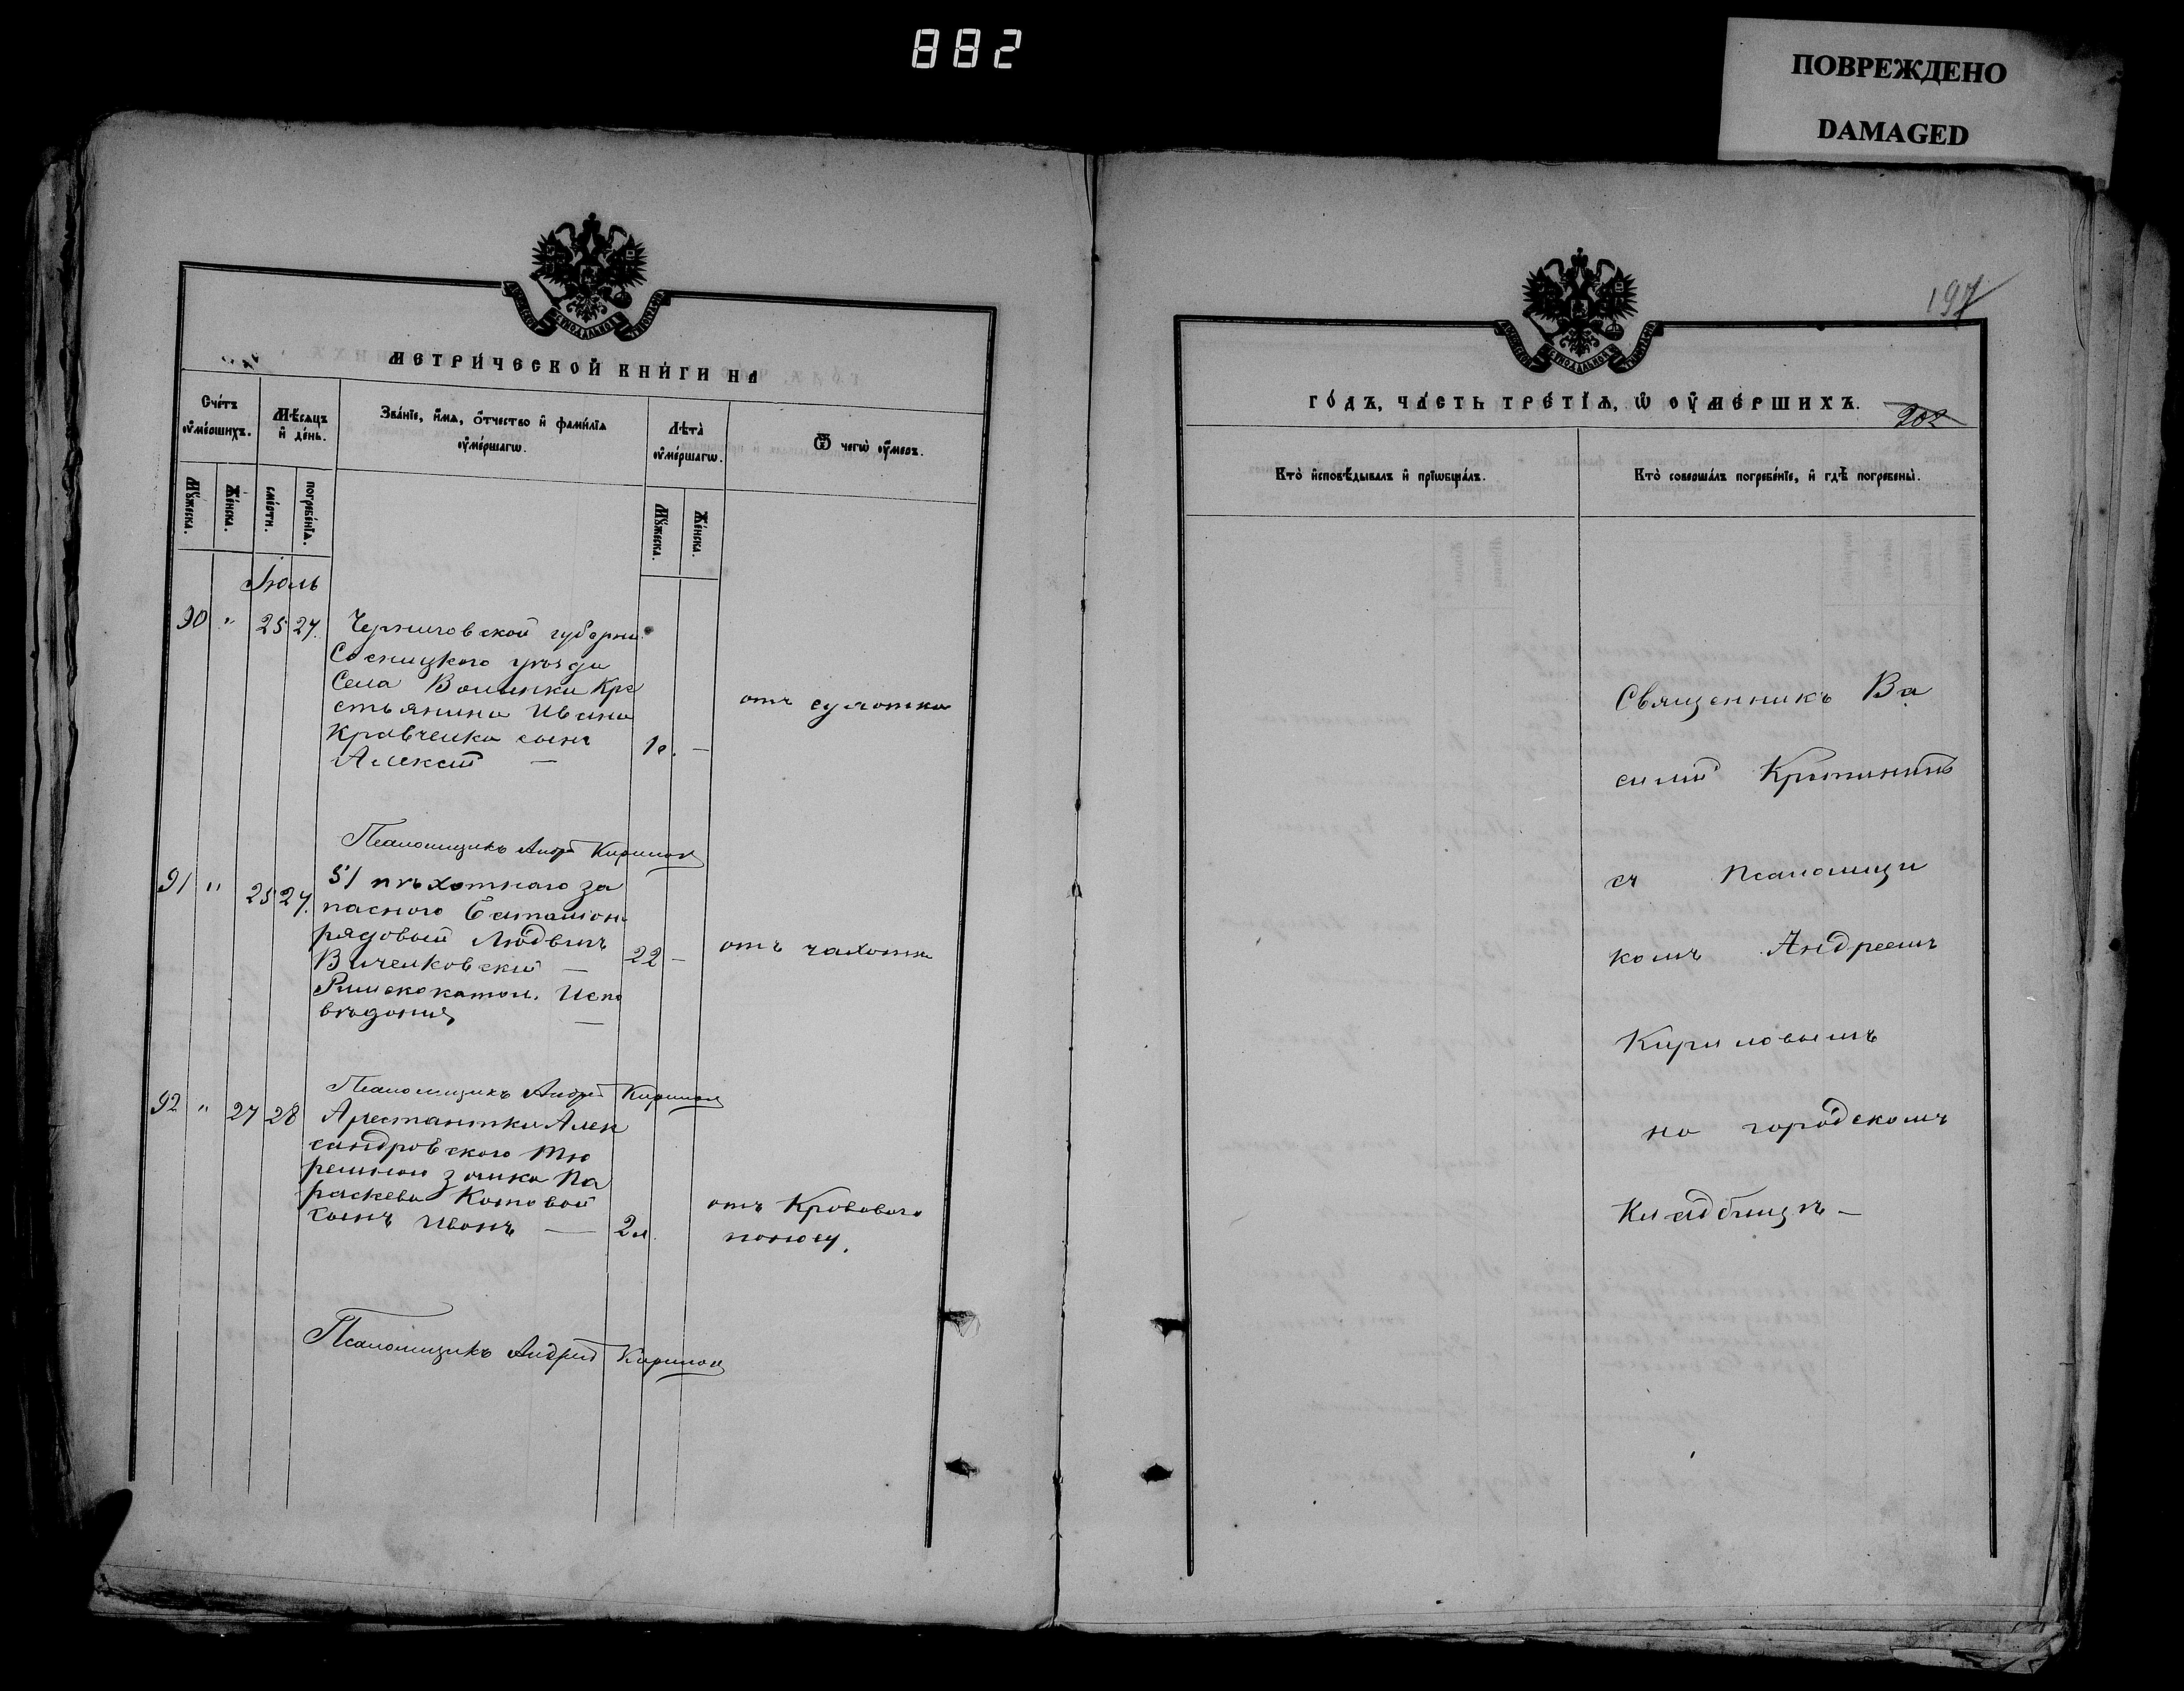 882
ПОВРЕЖДЕНО
DAMAGED
МЕТРИ́ЧЕСКОЙ КНИ́ГИ НА
Сче́тъ оу҆ме́ршихъ.
Мѣ́сяцъ и҆ де́нь.
Зва́нїе, и҆́мѧ, ѻ҆́тчество и҆ фами́лїѧ оу҆ме́ршагѡ.
Лѣ́та оу҆ме́ршагѡ.
Ѿ чегѡ̀ оу҆́меръ.
Мꙋ́жеска.
Же́нска.
сме́рти.
погребе́нїѧ.
Мꙋ́жеска.
Же́нска.
Іюль
90 " 25 27.
Черниговской губерни
Сосницкого уѣзда
Села Волынки Кре
стьянина Ивана
Кравченка сынъ
Алексѣй —
1 г. —
отъ сухотка
Псаломщикъ Андрей Кирилов
91 " 25 27.
51 пѣхотнаго за
паснаго баталіон
рядовый Людвигъ
Виченковскій —
Римскокатол. Испо
вѣданія —
22 —
отъ чахотки
Псаломщикъ Андрей Кирилов
92 " 27 28
Арестантки Алек
сандровского тю
ремного замка Па
раскева Котовой
сынъ Иванъ —
2 л.
отъ Кровавого
поносу.
Псаломщикъ Андрей Кирилов
197
ГО́ДЪ, ЧА́СТЬ ТРЕ́ТЇѦ, Ѡ҆ ОУ҆МЕ́РШИХЪ.
202
Кто̀ и҆сповѣ́дывалъ и҆ прїѡбща́лъ.
Кто̀ соверша́лъ погребе́нїе, и҆ гдѣ̀ погребены̀.
Священникъ Ва
силій
съ Псаломщи
комъ Андреемъ
Кириловымъ
на городскомъ
Кладбищѣ —